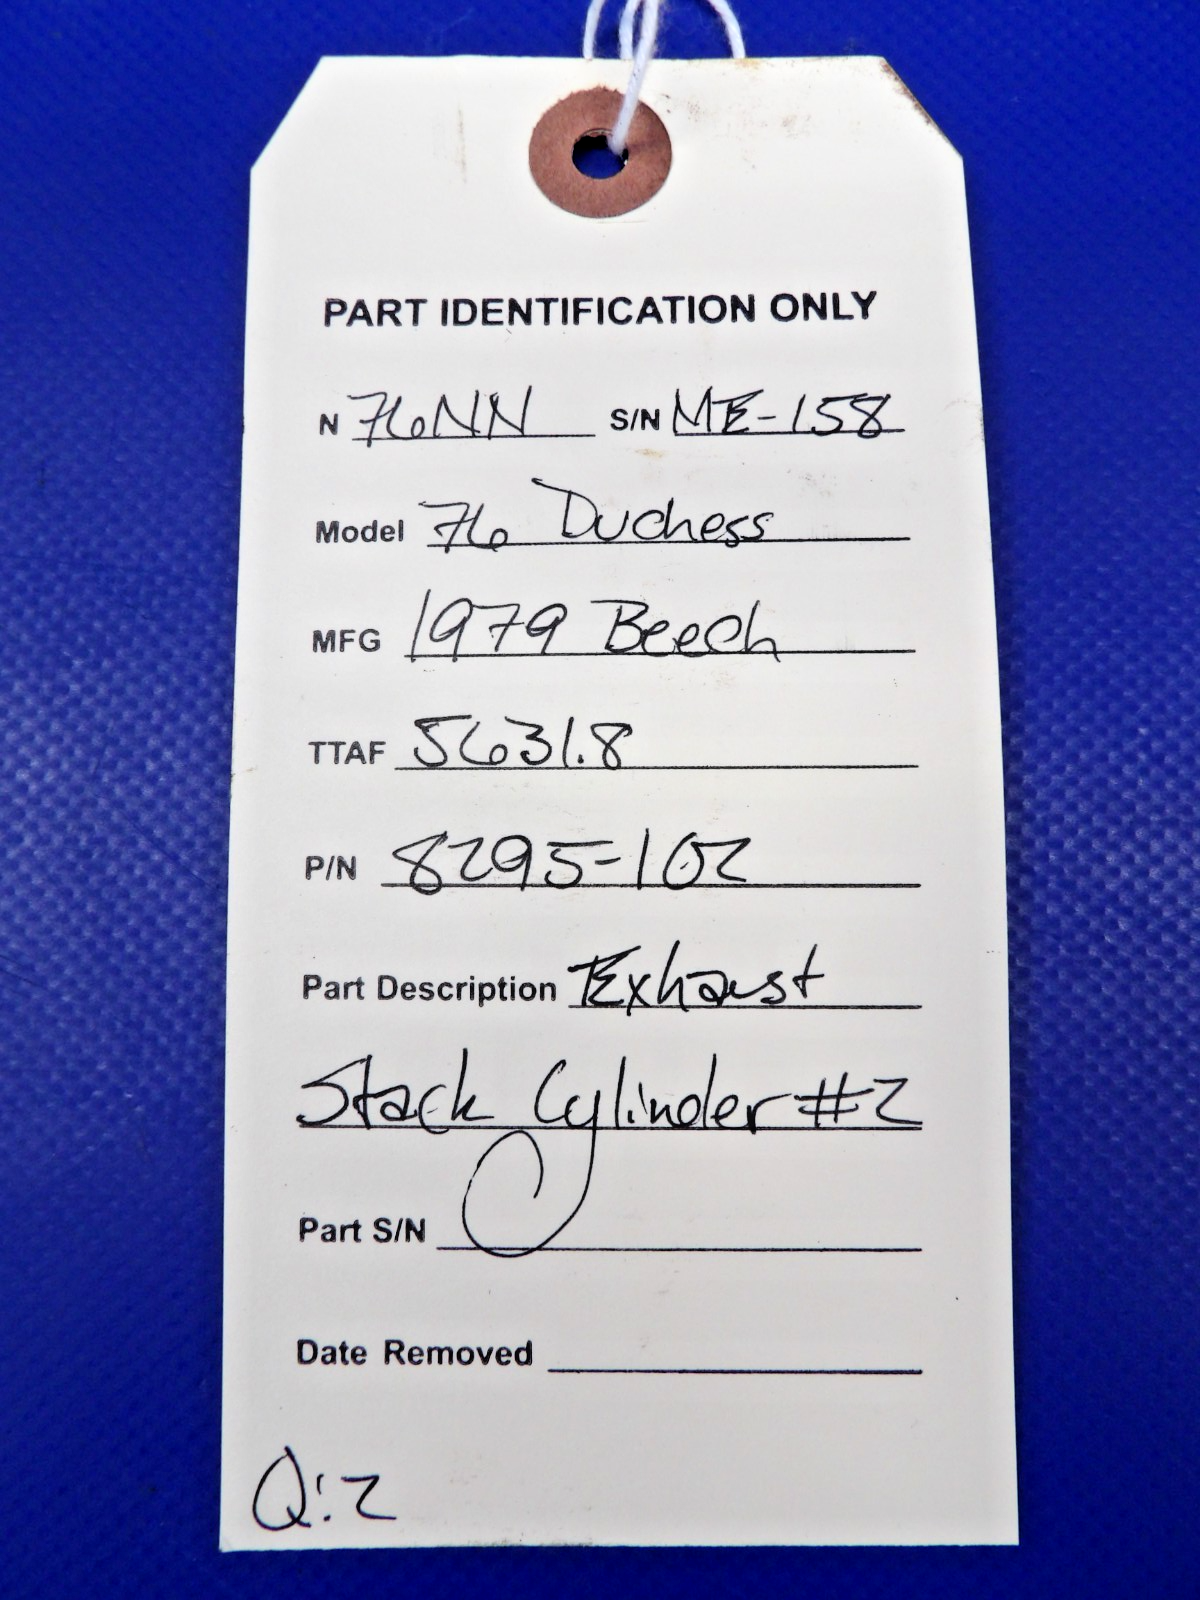 PART IDENTIFICATION ONLY
N 76NN S/N ME-158
Model 76 Duchess
MFG 1979 Beech
TTAF 5631.8
P/N 8295-102
Part Description Exhaust
Stack Cylinder #2
Part S/N
Date Removed
Q:2